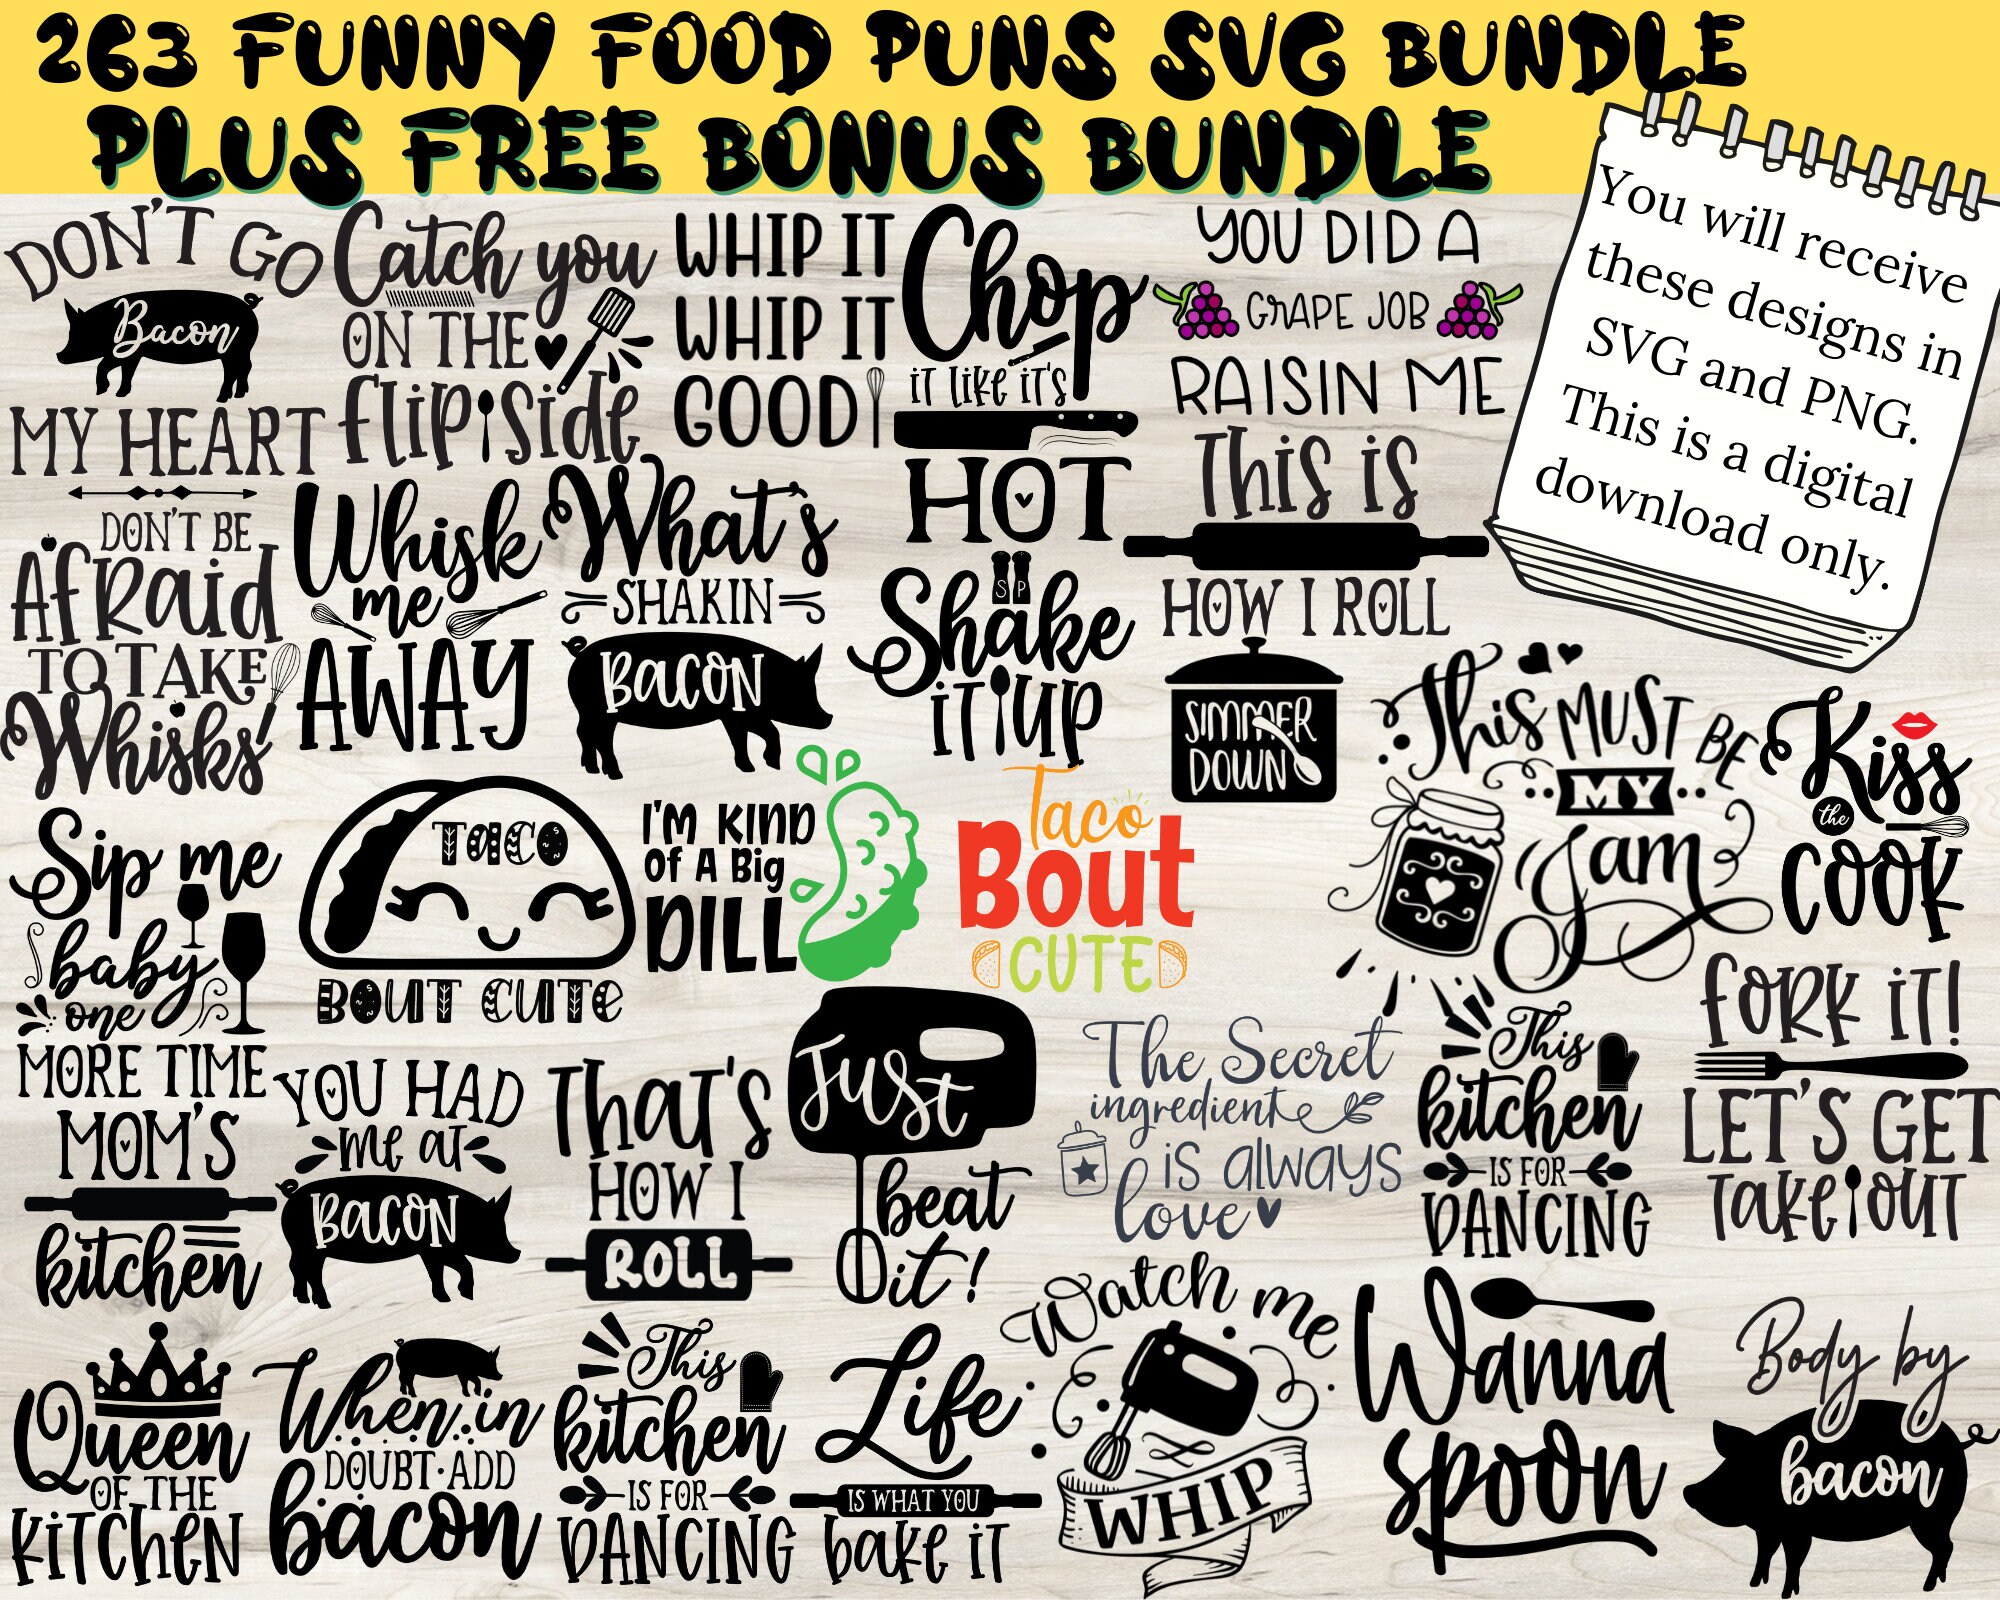 263 FUNNY FOOD PUNS SVG BUNDLE
PLUS FREE BONUS BUNDLE
You will receive
these designs in
SVG and PNG.
This is a digital
download only.
DON'T GO
Bacon
MY HEART
Catch you
ON THE
flip side
WHIP IT
WHIP IT
GOOD
Chop
it like it's
HOT
YOU DID A
GRAPE JOB
RAISIN ME
This is
HOW I ROLL
DON'T BE
Afraid
TO TAKE
Whisks
Whisk
me
AWAY
What's
SHAKIN
BACON
S P
Shake
it UP
SIMMER
DOWN
This MUST BE
MY
Jam
Kiss
the
COOK
Sip me
baby
one
MORE TIME
TACO
BOUT CUTE
I'M KIND
Of A Big
DILL
Taco
Bout
CUTE
fork it!
LET'S GET
take out
MOM'S
kitchen
YOU HAD
me at
BACON
That's
HOW I
ROLL
Just
beat
it!
The Secret
ingredient
is always
love
This
kitchen
IS FOR
DANCING
Queen
OF THE
KitcheN
When in
DOUBT ADD
bacon
This
kitchen
IS FOR
DANCING
Life
IS WHAT YOU
bake it
Watch me
WHIP
Wanna
spoon
Body by
bacon